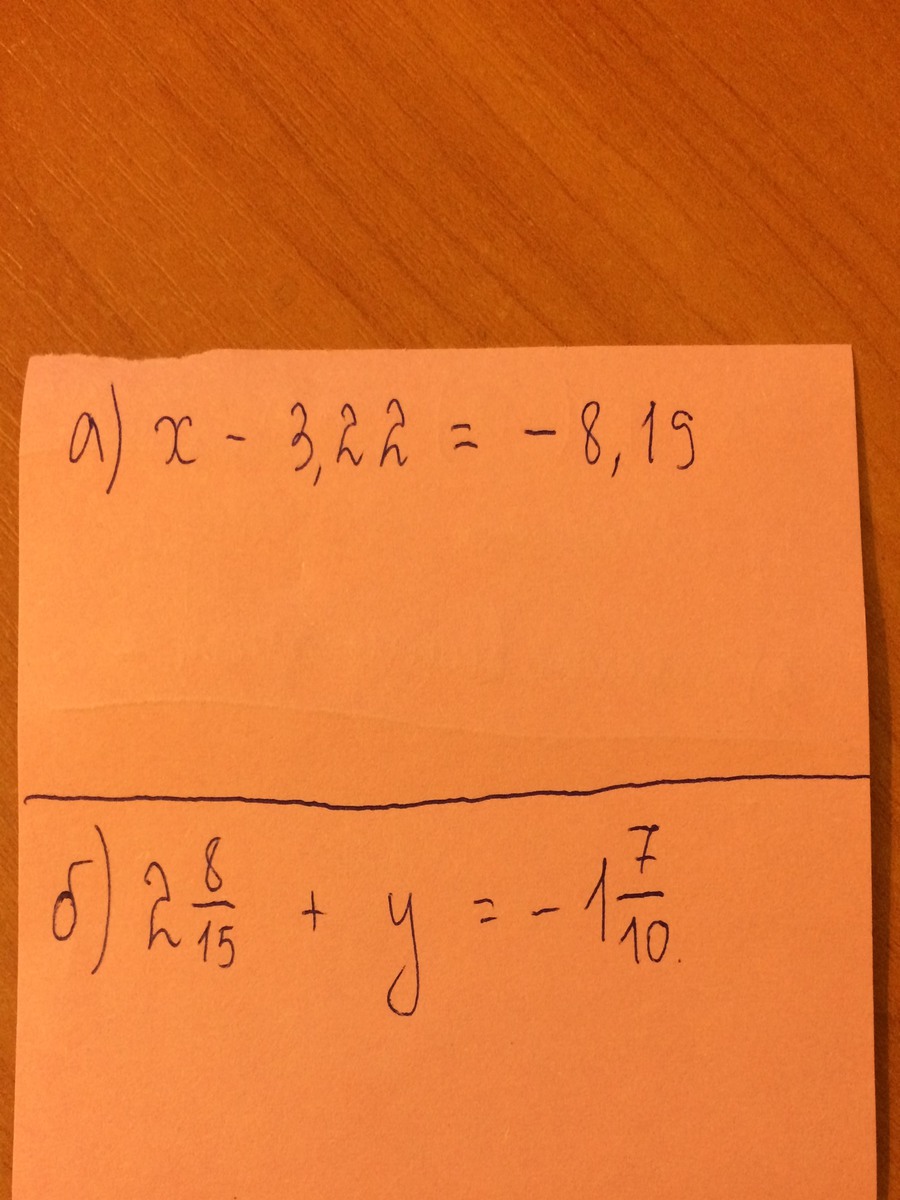 а) x - 3,22 = - 8,19
б) 2 8/15 + y = - 1 7/10.